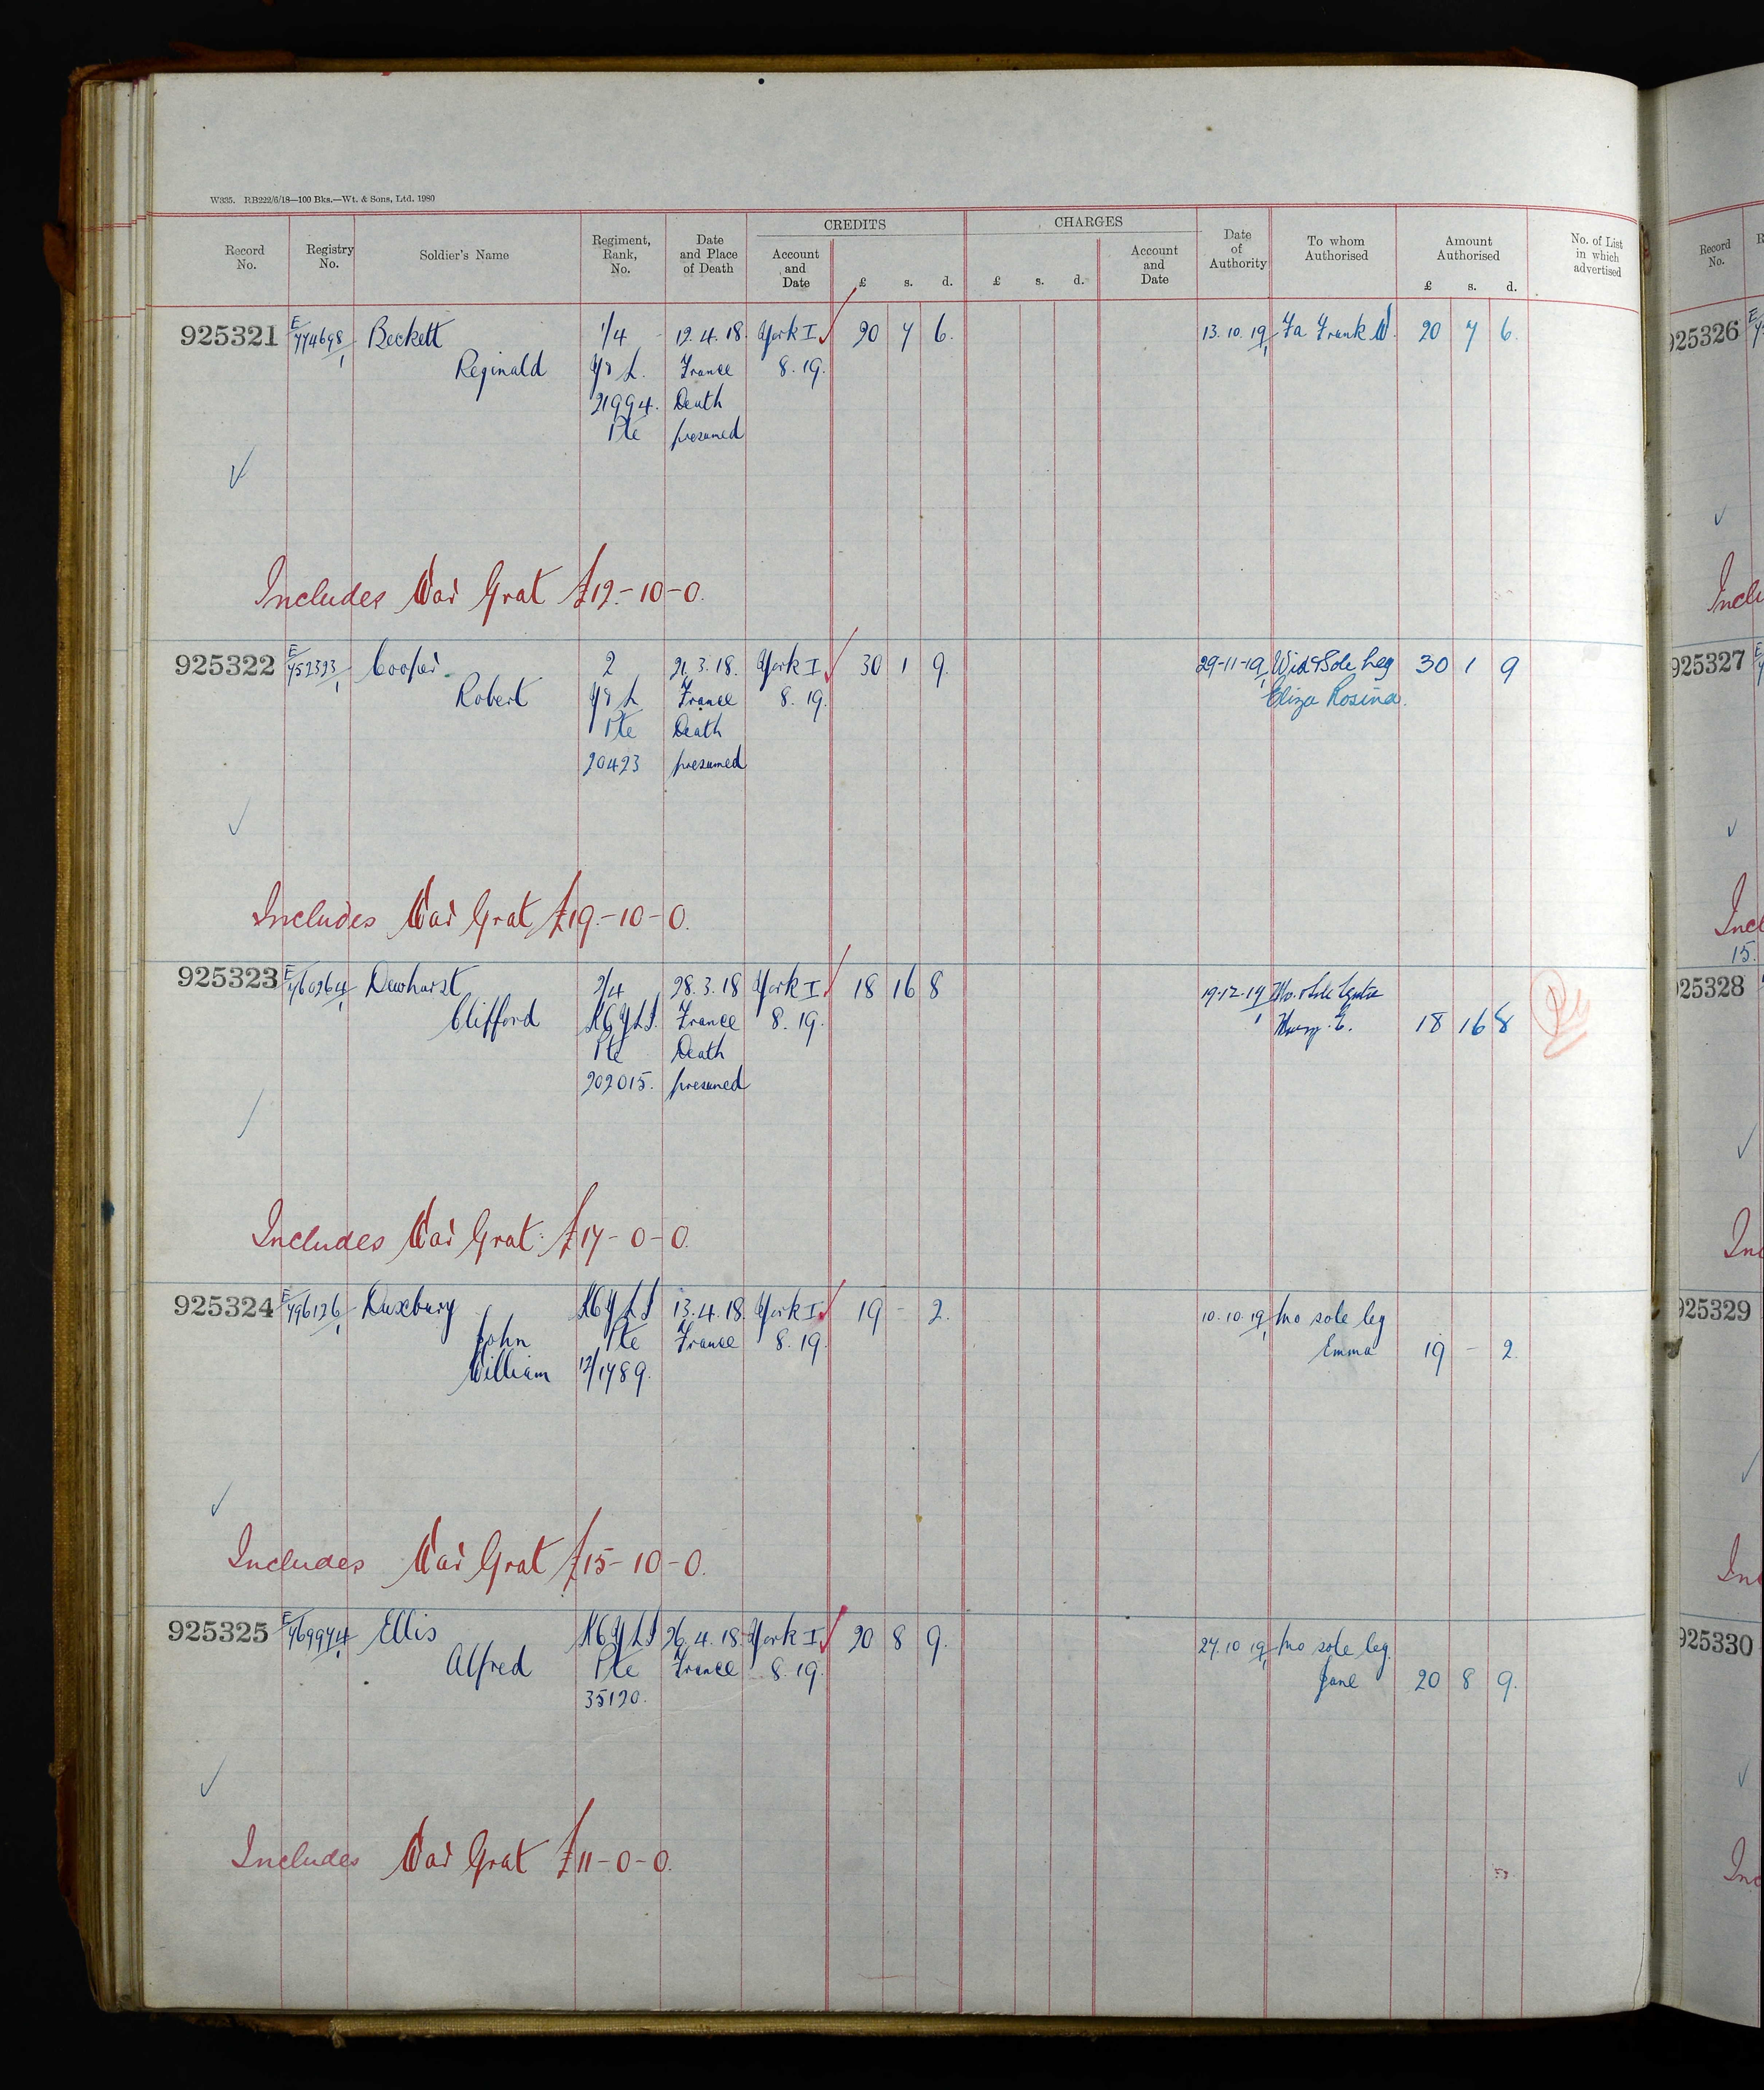 W335. RB222/6/18—100 Bks.—Wt. & Sons, Ltd. 1980
CREDITS CHARGES
Record No. Registry No. Soldier's Name Regiment, Rank, No. Date and Place of Death Account and Date £ s. d. £ s. d. Account and Date Date of Authority To whom Authorised Amount Authorised £ s. d. No. of List in which advertised
925321 E/774698/1 Beckett 1/4 12.4.18. York I 20 7 6. 13.10.19 Fa Frank W. 20 7 6.
Reginald Y & L. France 8.19.
21994. Death
Pte presumed
Includes War Grat £12-10-0.
925322 E/752323/1 Cooper 2 21.3.18. York I 30 1 9. 29-11-19 Wid & Sole Leg 30 1 9
Robert Y & L France 8.19. Eliza Rosina.
Pte Death
20423 presumed
Includes War Grat £19-10-0.
925323 E/760264/1 Dewhurst 2/4 28.3.18 York I 18 16 8 19-12-19 Mo. & Sole
Clifford KOYLI. France 8.19. 18 16 8
Pte Death
202015. presumed
Includes War Grat. £17-0-0.
925324 E/796126/1 Duxbury KOYLI 13.4.18. York I 19 - 2. 10.10.19 Mo sole leg
John Pte France 8.19. Emma 19 - 2.
William 12/1789.
Includes War Grat £15-10-0.
925325 E/769974/1 Ellis KOYLI 26.4.18. York I 20 8 9. 27.10.19 Mo sole leg.
Alfred Pte France 8.19. Jane 20 8 9.
35120.
Includes War Grat £11-0-0.
Record No.
925326
Incl
925327
Incl
15.
925328
In
925329
In
925330
In